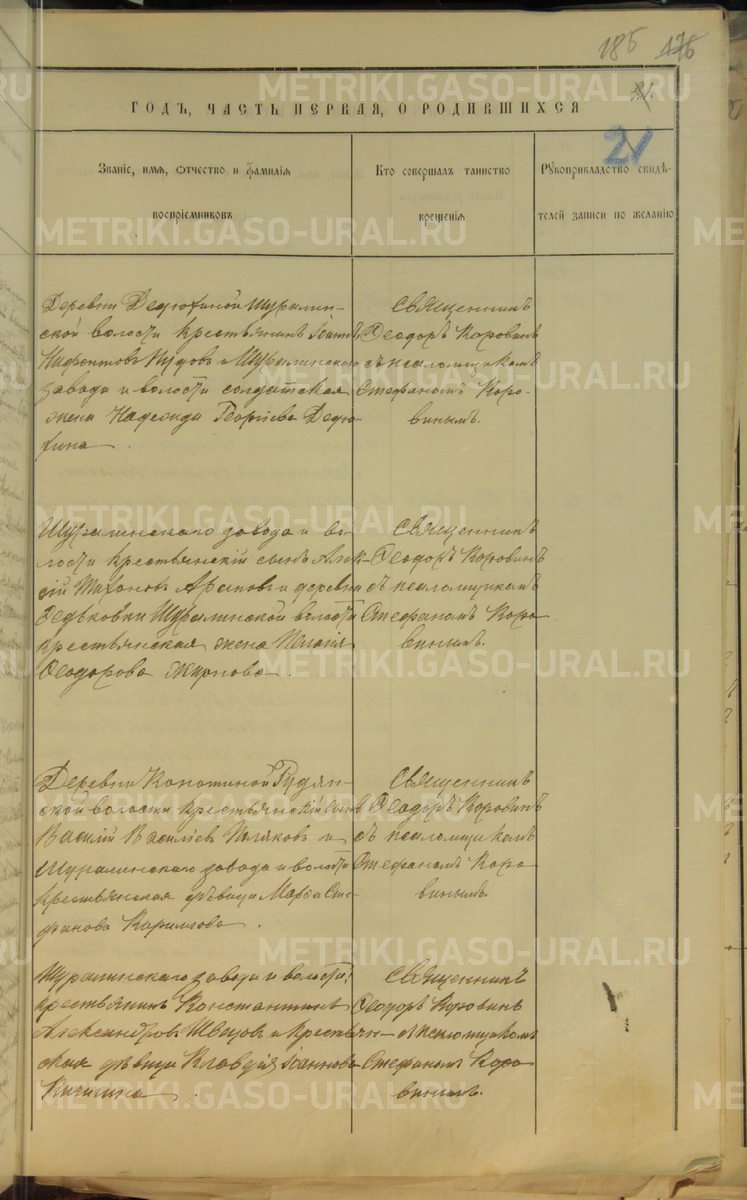 185 176
21
ГОДЪ, ЧАСТЬ ПЕРВАЯ, О РОДИВШИХСЯ
Званіе, имя, отчество и фамилія
воспріемниковъ
Кто совершалъ таинство
крещенія
Рукоприкладство свидѣ-
телей записи по желанію
Деревни Дедюхиной Шуралин-
ской волости крестьянинъ Іоаннъ
и Шуралинскаго
завода и волости солдатская
жена Надежда Георгіева Дедю-
хина.
Священникъ
Ѳеодоръ Коровинъ
съ псаломщикомъ
Стефаномъ Коро-
винымъ.
Шуралинскаго завода и во-
лости крестьянскій сынъ Алек-
сій Тихоновъ Араповъ и деревни
Федьковки Шуралинской волости
крестьянская жена Пелагія
Ѳеодорова Жирнова.
Священникъ
Ѳеодоръ Коровинъ
съ псаломщикомъ
Стефаномъ Коро-
винымъ.
Деревни Конотиной
ской волости крестьянскій сынъ
Василій Василіевъ Поляковъ и
Шуралинскаго завода и волости
крестьянская дѣвица Марѳа Сте-
фанова Кириллова.
Священникъ
Ѳеодоръ Коровинъ
съ псаломщикомъ
Стефаномъ Коро-
винымъ.
Шуралинскаго завода и волости:
крестьянинъ Константинъ
Александровъ Швецовъ и крестьян-
ская дѣвица Клавдія Іоаннова
Кичигина.
Священникъ
Ѳеодоръ Коровинъ
съ псаломщикомъ
Стефаномъ Коро-
винымъ.
METRIKI.GASO-URAL.RU
METRIKI.GASO-URAL.RU
METRIKI.GASO-URAL.RU
METRIKI.GASO-URAL.RU
METRIKI.GASO-URAL.RU
METRIKI.GASO-URAL.RU
METRIKI.GASO-URAL.RU
METRIKI.GASO-URAL.RU